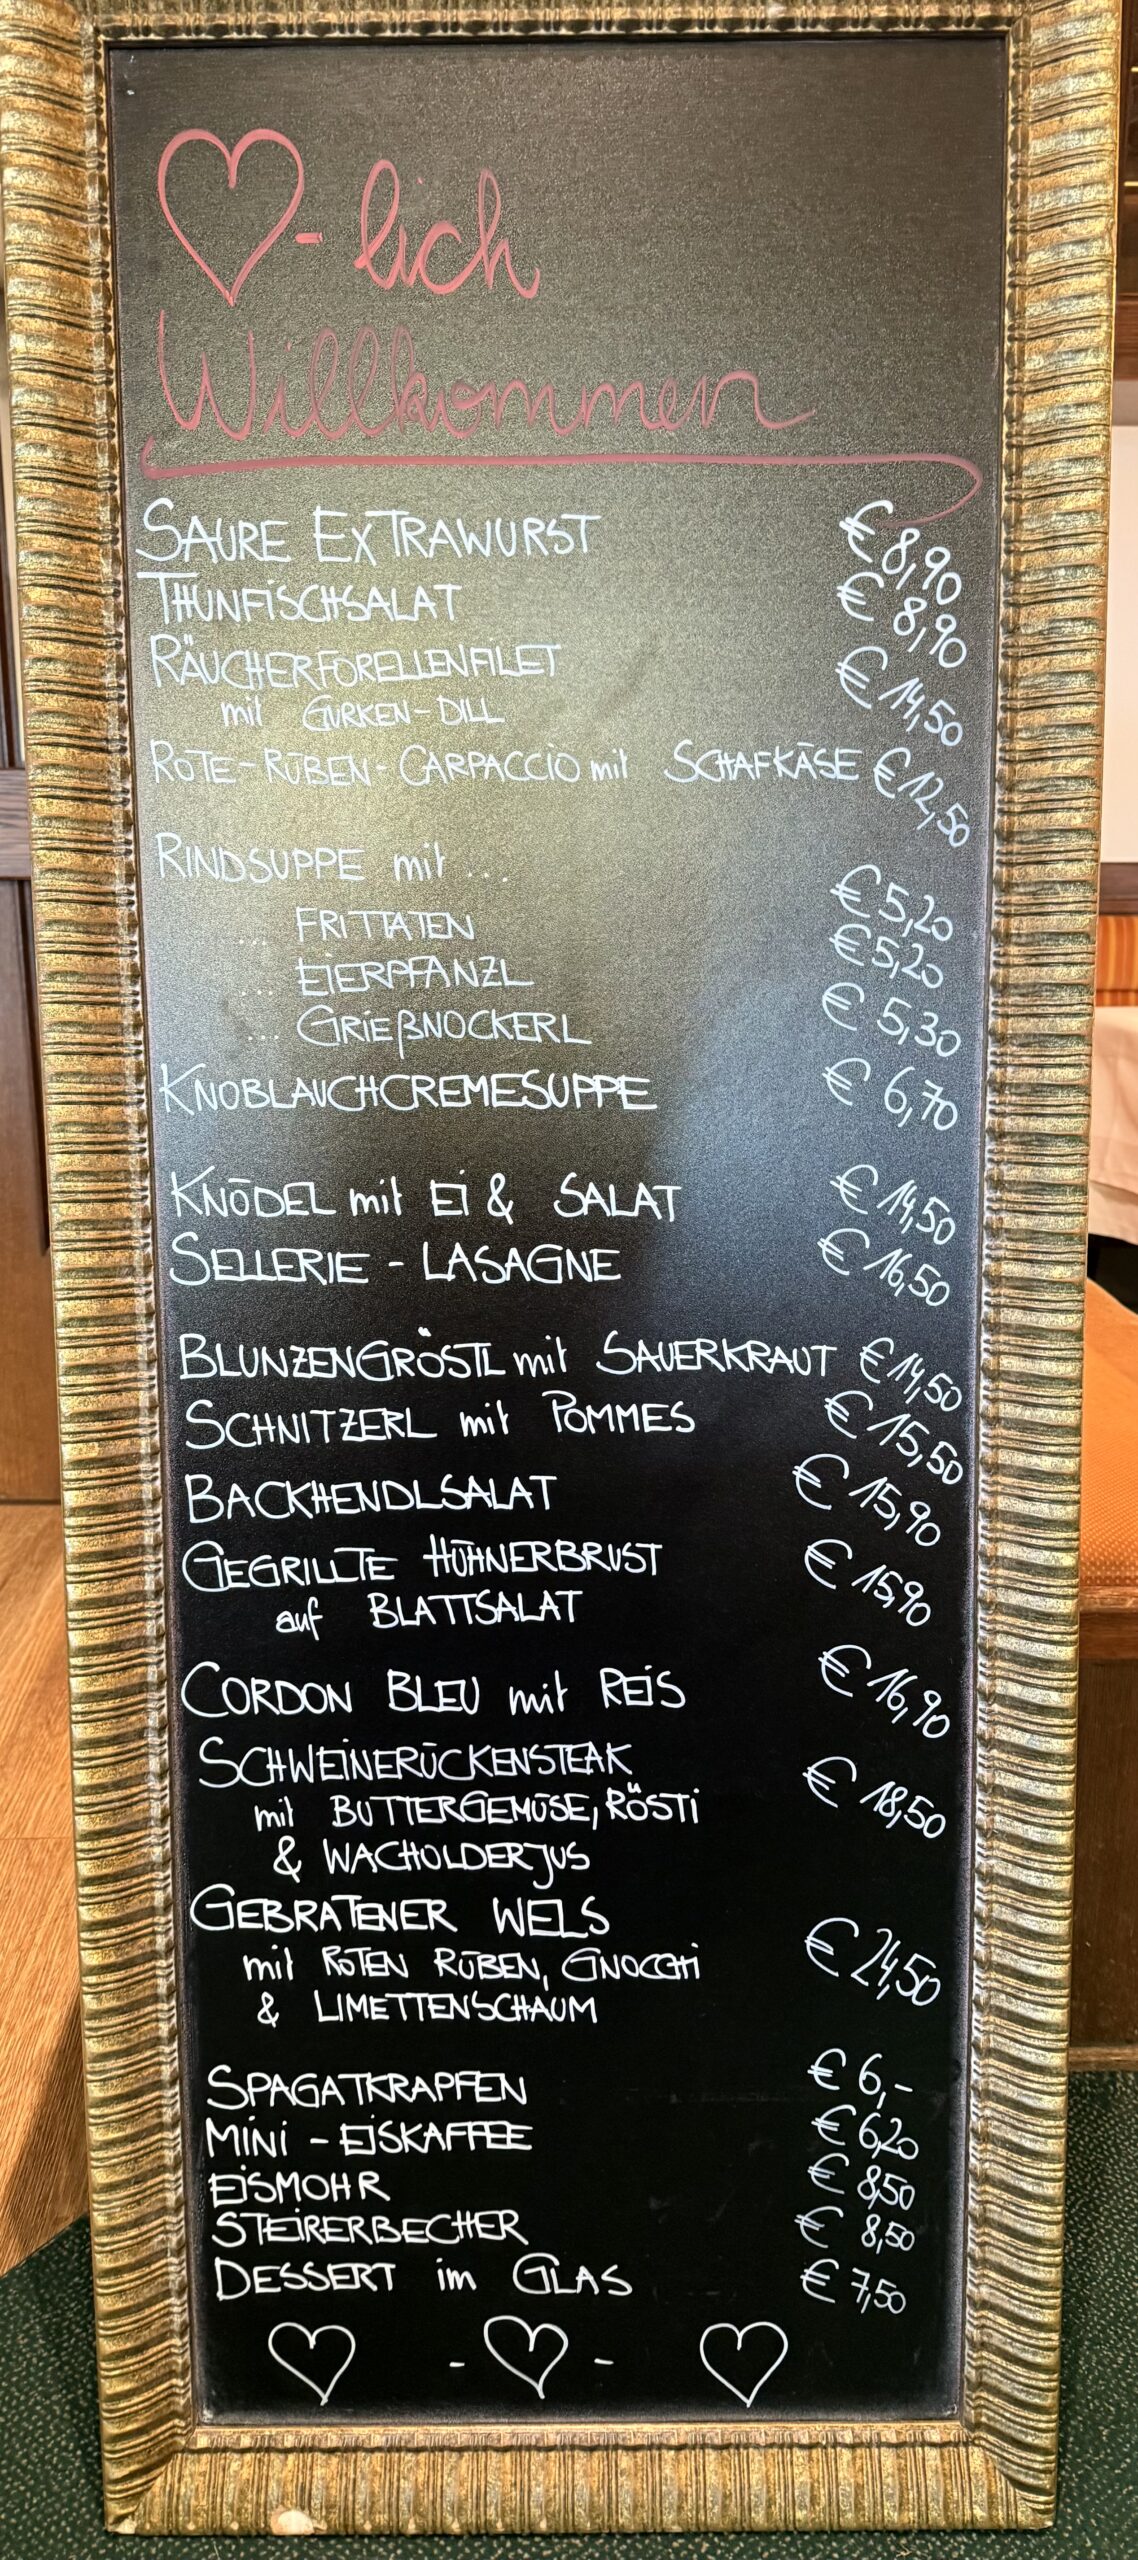 ♡-lich
Willkommen
SAURE EXTRAWURST € 8,90
THUNFISCHSALAT € 8,90
RÄUCHERFORELLENFILET € 14,50
mit GURKEN-DILL
ROTE-RÜBEN-CARPACCIO mit SCHAFKÄSE € 12,50
RINDSUPPE mit ...
... FRITTATEN € 5,20
... EIERPFANZL € 5,20
... GRIEßNOCKERL € 5,30
KNOBLAUCHCREMESUPPE € 6,70
KNÖDEL mit EI & SALAT € 14,50
SELLERIE - LASAGNE € 16,50
BLUNZENGRÖSTL mit SAUERKRAUT € 14,50
SCHNITZERL mit POMMES € 15,50
BACKHENDLSALAT € 15,90
GEGRILLTE HÜHNERBRUST € 15,90
auf BLATTSALAT
CORDON BLEU mit REIS € 16,90
SCHWEINERÜCKENSTEAK € 18,50
mit BUTTERGEMÜSE, RÖSTI
& WACHOLDERJUS
GEBRATENER WELS € 24,50
mit ROTEN RÜBEN, GNOCCHI
& LIMETTENSCHAUM
SPAGATKRAPFEN € 6,-
MINI - EISKAFFEE € 6,20
EISMOHR € 8,50
STEIRERBECHER € 8,50
DESSERT im GLAS € 7,50